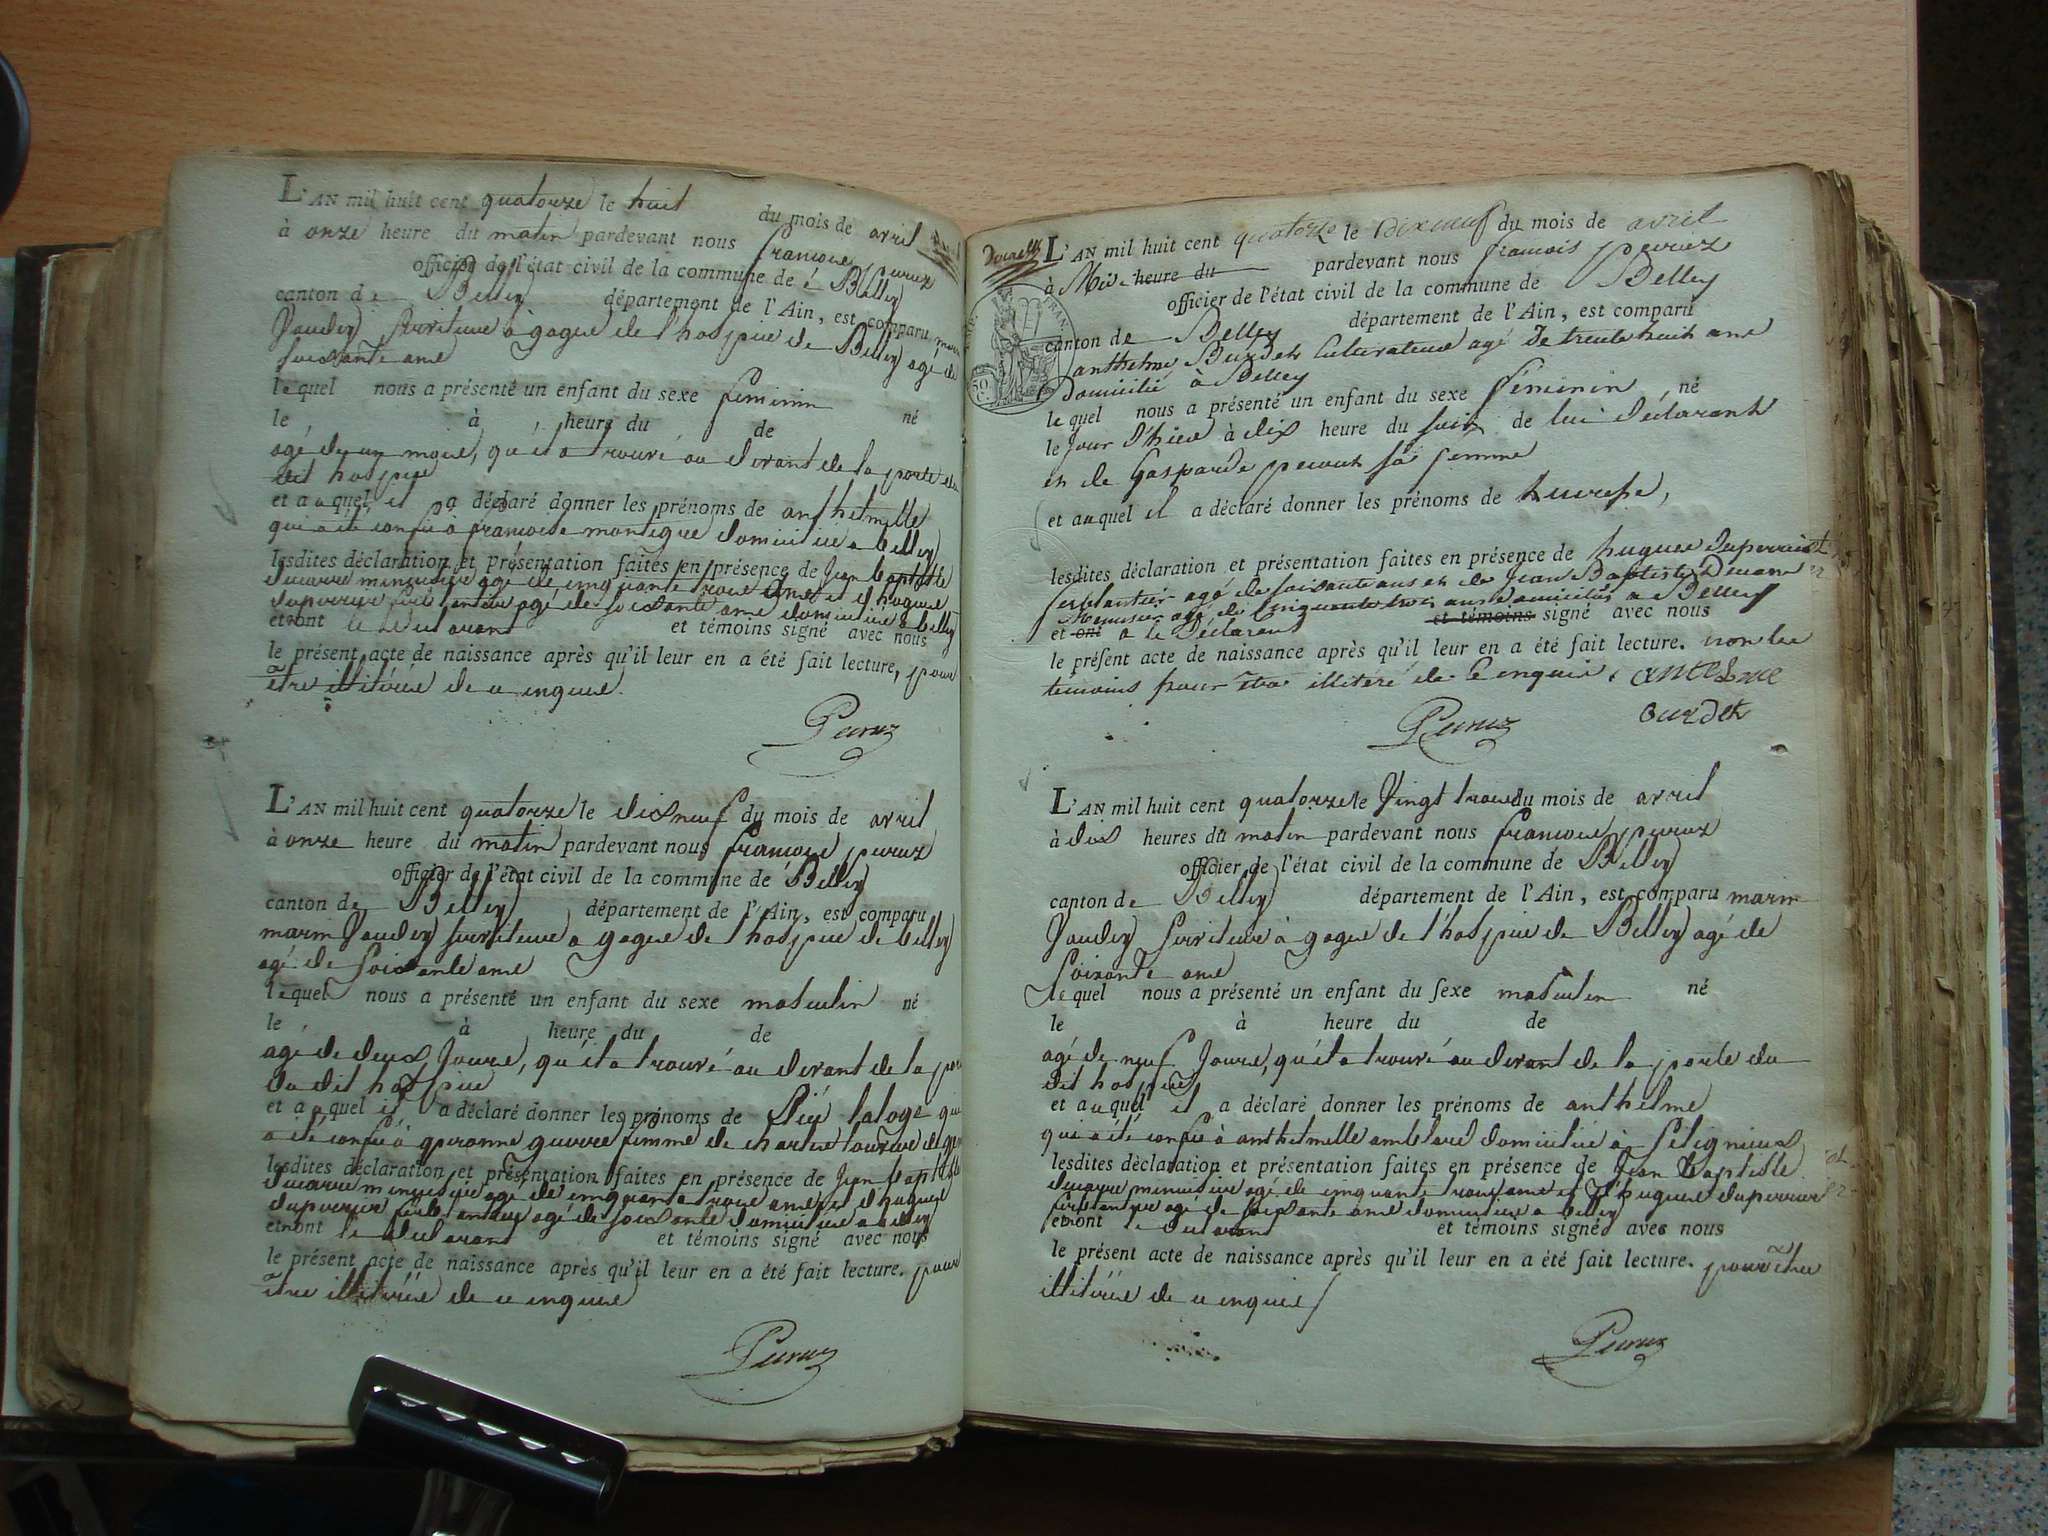 L'AN mil huit cent quatorze le huit du mois de avril
à onze heure du matin pardevant nous françois peruz
officier de l'état civil de la commune de Belley
canton de Belley département de l'Ain, est comparu marin
serviteur à gages de l'hospice de Belley agé de
soixante ans
lequel nous a présenté un enfant du sexe feminin né
le à heure du de
agé de un mois, qu'il a trouvé au devant de la porte du
dit hospice
et auquel il a déclaré donner les prénoms de
qui a été confié à françoise domicilié a belley
lesdites déclaration et présentation faites en présence de Jean baptiste
menuisier agé de cinquante trois ans et d'hugues
agé de soixante ans domiciliés a belley
et n'ont le declarant et témoins signé avec nous
le présent acte de naissance après qu'il leur en a été fait lecture, pour
être de ce enquis.
Peruz
L'AN mil huit cent quatorze le dix neuf du mois de avril
à onze heure du matin pardevant nous françois peruz
officier de l'état civil de la commune de Belley
canton de Belley département de l'Ain, est comparu
marin serviteur a gages de l'hospice de belley
agé de soixante ans
lequel nous a présenté un enfant du sexe masculin né
le à heure du de
agé de deux jours, qu'il a trouvé au devant de la
du dit hospice
et auquel il a déclaré donner les prénoms de qui
a été confié à femme de
lesdites déclaration et présentation faites en présence de Jean baptiste
menuisier agé de cinquante trois ans et d'hugues
agé de soixante domiciliés a belley
et n'ont le declarant et témoins signé avec nous
le présent acte de naissance après qu'il leur en a été fait lecture. pour
être de ce enquis
Peruz
L'AN mil huit cent quatorze le dix neuf du mois de avril
à Midi heure du pardevant nous françois peruz
officier de l'état civil de la commune de Belley
canton de Belley département de l'Ain, est comparu
anthelme Burdet Cultivateur agé de trente huit ans
Domicilié à Belley
lequel nous a présenté un enfant du sexe feminin né
le jour d'hier à dix heure du soir de lui Déclarant
et de Gasparde sa femme
et auquel il a déclaré donner les prénoms de
lesdites déclaration et présentation faites en présence de hugues
agé de soixante ans et de Jean Baptiste
Menuisier agé de cinquante trois ans domiciliés a Belley
et ont a le Déclarant et témoins signé avec nous
le présent acte de naissance après qu'il leur en a été fait lecture. non les
temoins pour être de ce enquis.
Peruz
L'AN mil huit cent quatorze le Vingt trois du mois de avril
à dix heures du matin pardevant nous françois peruz
officier de l'état civil de la commune de Belley
canton de Belley département de l'Ain, est comparu marin
serviteur à gages de l'hospice de Belley agé de
soixante ans
lequel nous a présenté un enfant du sexe masculin né
le à heure du de
agé de neuf jours, qu'il a trouvé au devant de la porte du
dit hospice
et auquel il a déclaré donner les prénoms de anthelme
qui a été confié à domicilié à
lesdites déclaration et présentation faites en présence de Jean Baptiste
menuisier agé de cinquante trois ans et d'hugues
agé de soixante ans domiciliés a belley
et n'ont le declarant et témoins signé avec nous
le présent acte de naissance après qu'il leur en a été fait lecture. pour être
de ce enquis
Peruz